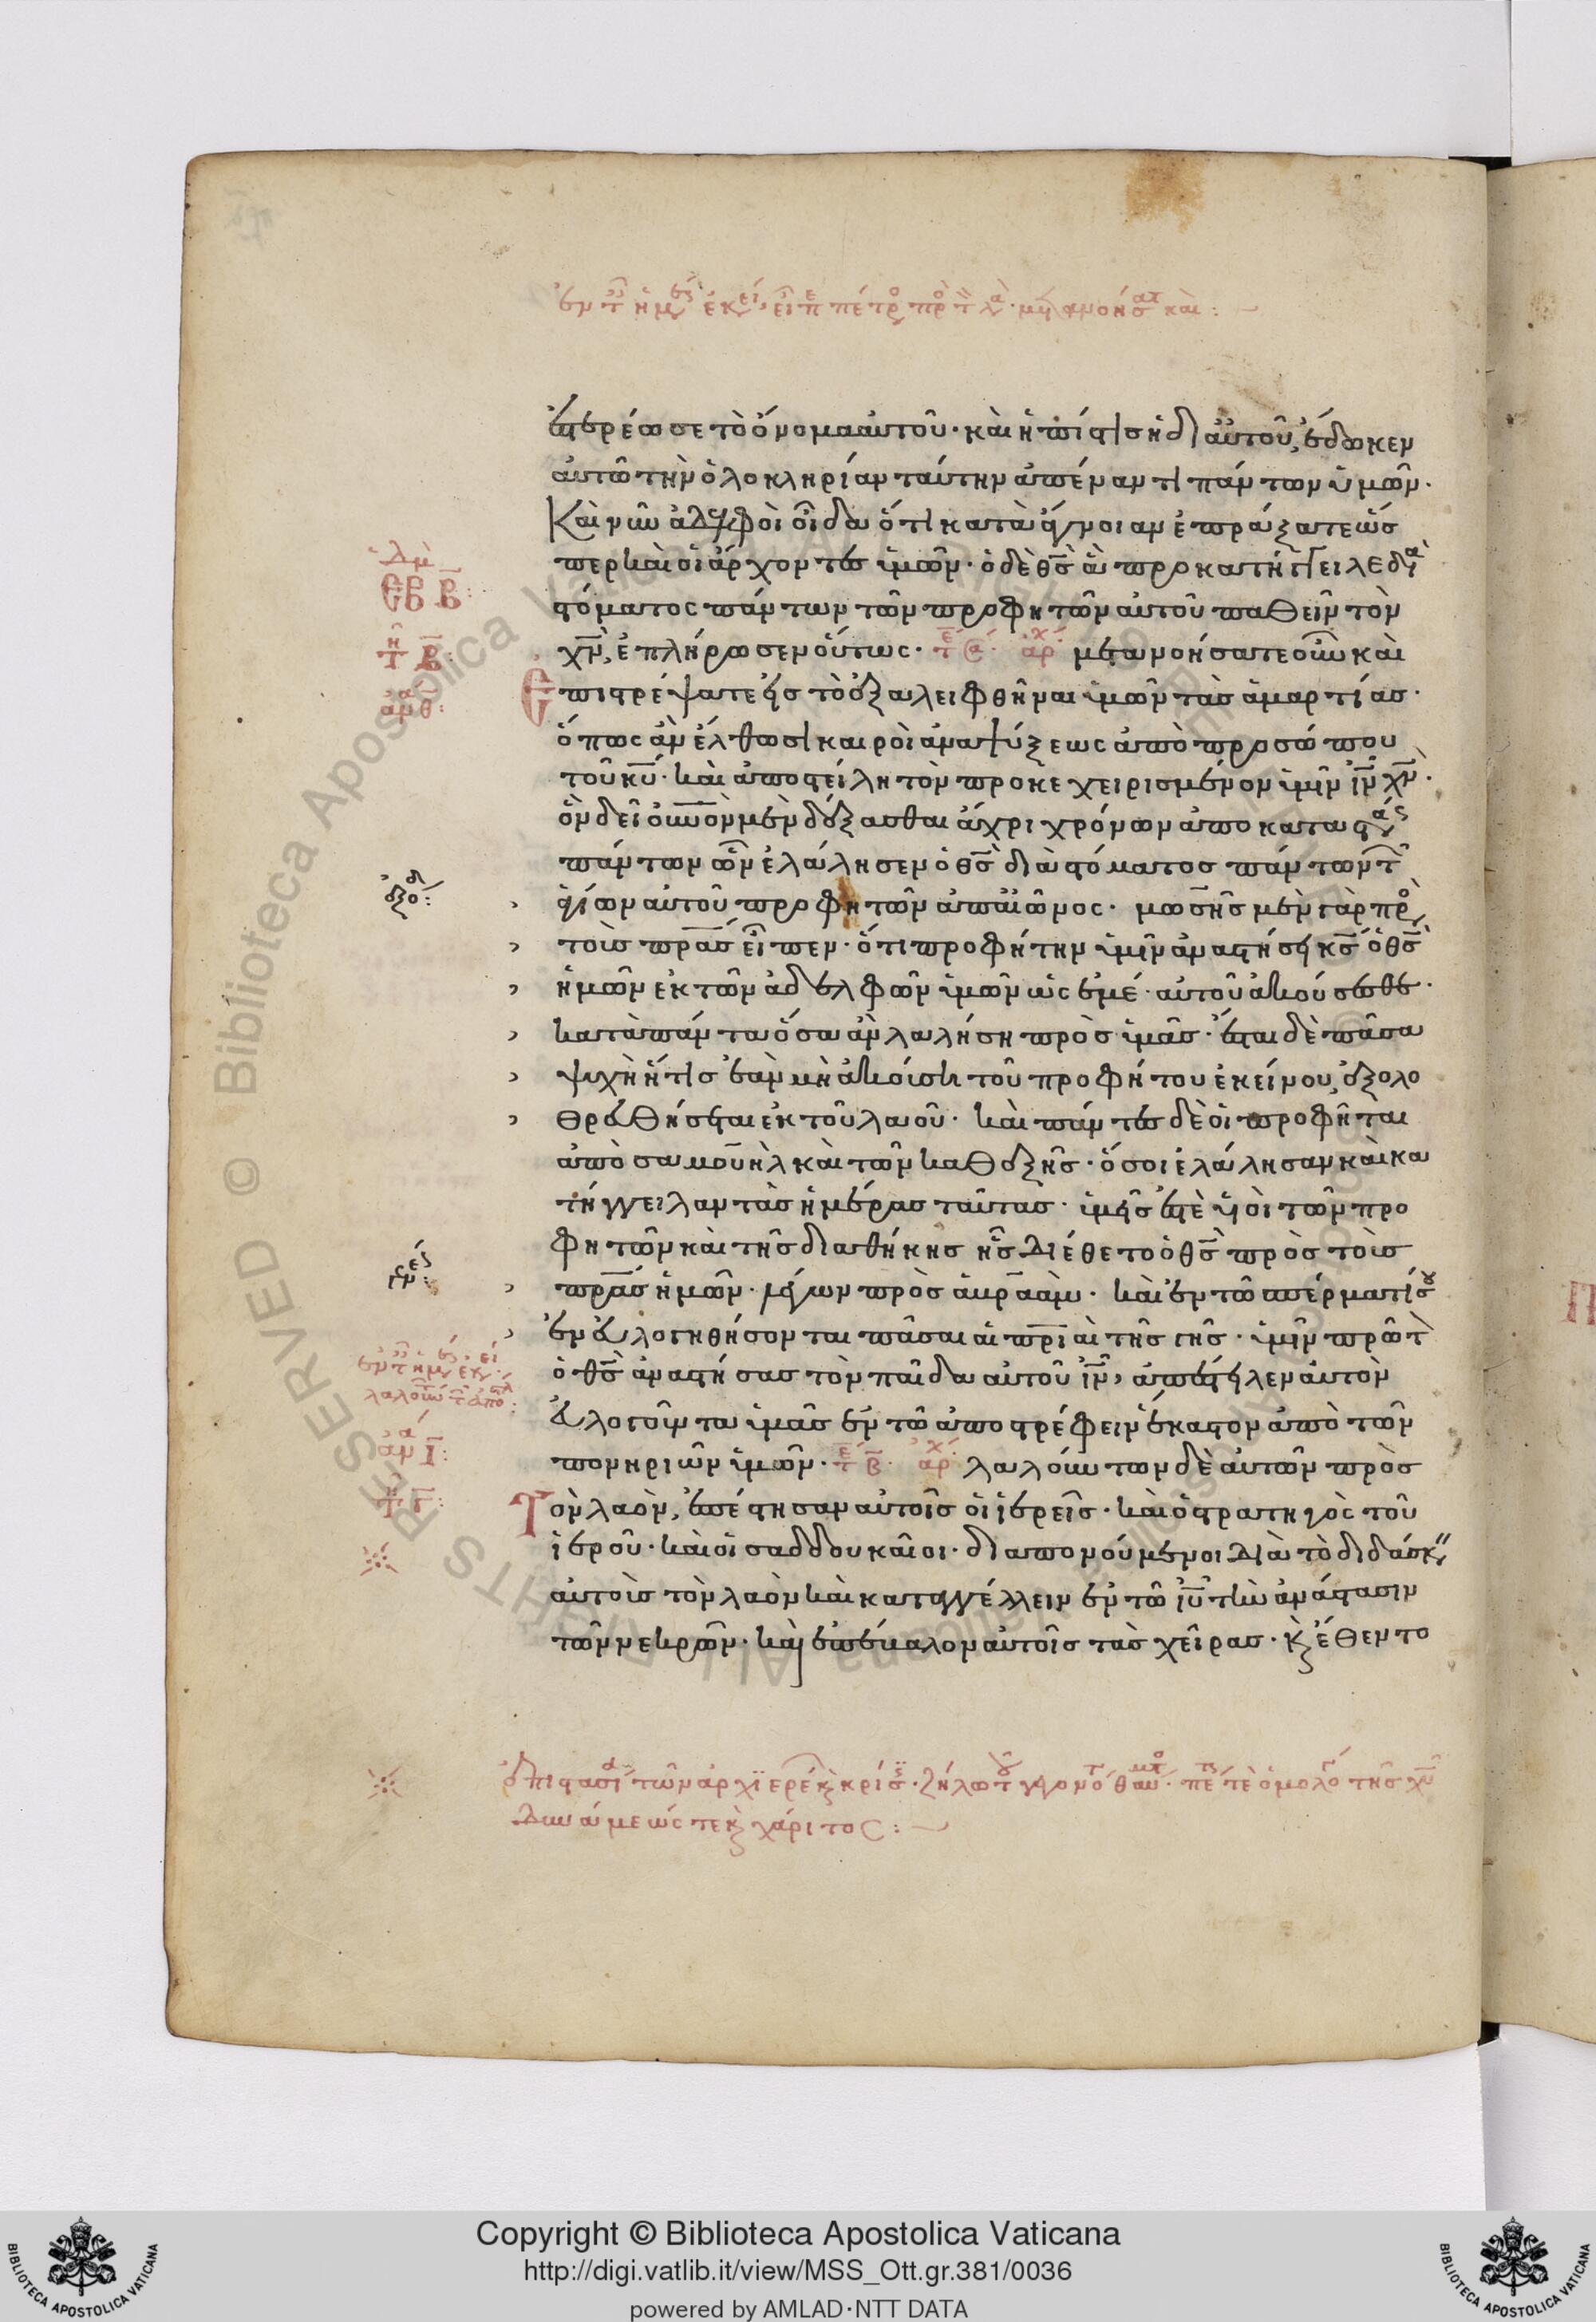 ἐστερέωσε τὸ ὄνομα αὐτοῦ· καὶ ἡ πίστις ἡ δι αὐτοῦ, ἔδωκεν
αὐτῶ τὴν ὁλοκληρίαν ταύτην ἀπέναντι πάντων ὑμῶν·
Καὶ νῦν ἀδελφοὶ οἶδα ὅτι κατὰ ἄγνοιαν ἐπράξατε ὥσ
περ καὶ οἱ ἄρχοντες ὑμῶν· ὁ δὲ θς ἃ προκατήγγειλε δια
στόματος πάντων τῶν προφητῶν αὐτοῦ παθεῖν τὸν
χν, ἐπλήρωσεν οὕτως· μετανοήσατε οὖν καὶ
ἐπιστρέψατε εἰς τὸ ἐξαλειφθῆναι ὑμῶν τὰς ἁμαρτίας·
ὅπως ἂν ἔλθωσι καιροὶ ἀναψύξεως ἀπὸ προσώπου
τοῦ κυ· καὶ ἀποστείλη τὸν προκεχειρισμένον ὑμῖν ιν χν·
ὃν δεῖ οὐνον μὲν δέξασθαι ἄχρι χρόνων ἀποκαταστάς
πάντων ὧν ἐλάλησεν ὁ θς διὰ στόματος πάντων τ
ἁγίων αὐτοῦ προφητῶν ἀπαιῶνος· μωσῆς μὲν γὰρ πρ
τοὺς πρας εἶπεν· ὅτι προφήτην ὑμῖν ἀναστήσει κς ὁ θς
ἡμῶν ἐκ τῶν ἀδελφῶν ὑμῶν ὡς ἐμέ· αὐτοῦ ἀκούσεσθε·
κατὰ πάντα ὅσα ἂν λαλήση πρὸς ὑμᾶς· ἔσται δὲ πᾶσα
ψυχὴ ἥτις ἐὰν μὴ ἀκούση τοῦ προφήτου ἐκείνου, ἐξολο
θρευθήσεται ἐκ τοῦ λαοῦ· καὶ πάντες δὲ οἱ προφῆται
ἀπὸ σαμουὴλ καὶ τῶν καθεξῆς· ὅσοι ἐλάλησαν καὶ κα
τήγγειλαν τὰς ἡμέρας ταύτας· ὑμεῖς ἐστὲ υἱοὶ τῶν προ
φητῶν καὶ τῆς διαθήκης ἧς διέθετο ὁ θς πρὸς τοὺς
πρας ἡμῶν· λέγων πρὸς ἀβρααμ· καὶ ἐν τῶ σπέρματί σου
ἐνευλογηθήσονται πᾶσαι αἱ πριαὶ τῆς γῆς· ὑμῖν πρῶτ
ὁ θς ἀναστήσας τὸν παῖδα αὐτοῦ ιν, ἀπέστειλεν αὐτὸν
εὐλογοῦντα ὑμᾶς ἐν τῶ ἀποστρέφειν ἕκαστον ἀπὸ τῶν
πονηριῶν ὑμῶν· λαλούντων δὲ αὐτῶν πρὸς
Τὸν λαὸν, ἐπέστησαν αὐτοῖς οἱ ἱερεῖς· καὶ ὁ στρατηγὸς τοῦ
ἱεροῦ· καὶ οἱ σαδδουκαῖοι· διαπονούμενοι διὰ τὸ διδάσκ
αὐτοὺς τὸν λαὸν καὶ καταγγέλλειν ἐν τῶ ιυ τὴν ἀνάστασιν
τῶν νεκρῶν· καὶ ἐπέβαλον αὐτοῖς τὰς χεῖρας· κ ἔθεντο
Copyright © Biblioteca Apostolica Vaticana
http://digi.vatlib.it/view/MSS_Ott.gr.381/0036
powered by AMLAD·NTT DATA